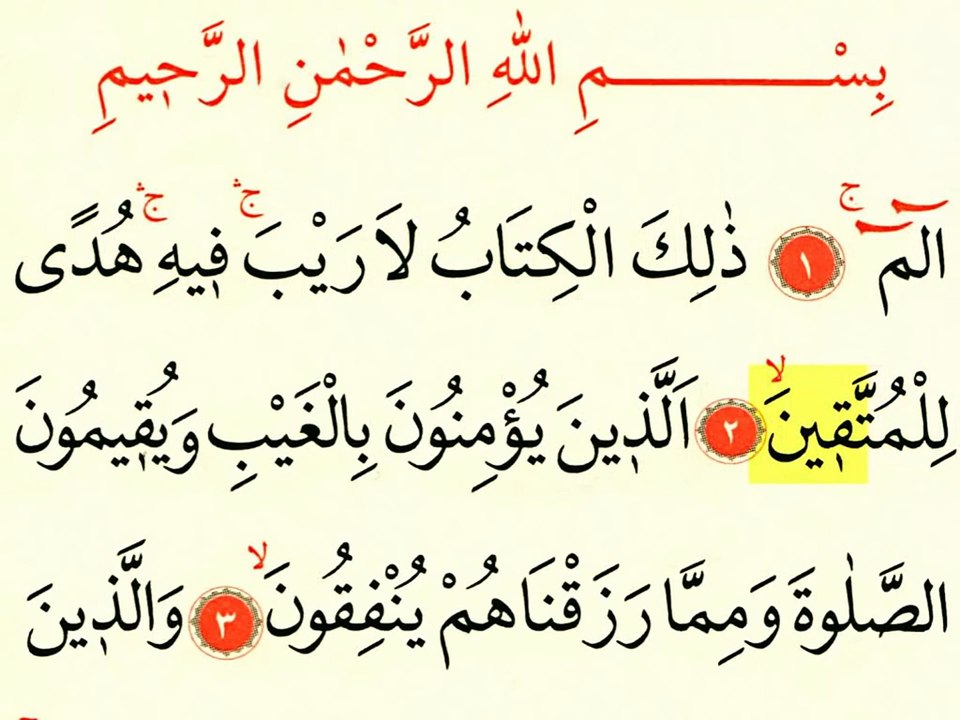 بِسْــــــــــمِ اللّٰهِ الرَّحْمٰنِ الرَّح۪يمِ
الٓمٓ ۚ ﴿١﴾ ذٰلِكَ الْكِتَابُ لَا رَيْبَ ۛۚ ف۪يهِ ۛۚ هُدًى
لِلْمُتَّق۪ينَ ۙ ﴿٢﴾ اَلَّذ۪ينَ يُؤْمِنُونَ بِالْغَيْبِ وَيُق۪يمُونَ
الصَّلٰوةَ وَمِمَّا رَزَقْنَاهُمْ يُنْفِقُونَ ۙ ﴿٣﴾ وَالَّذ۪ينَ